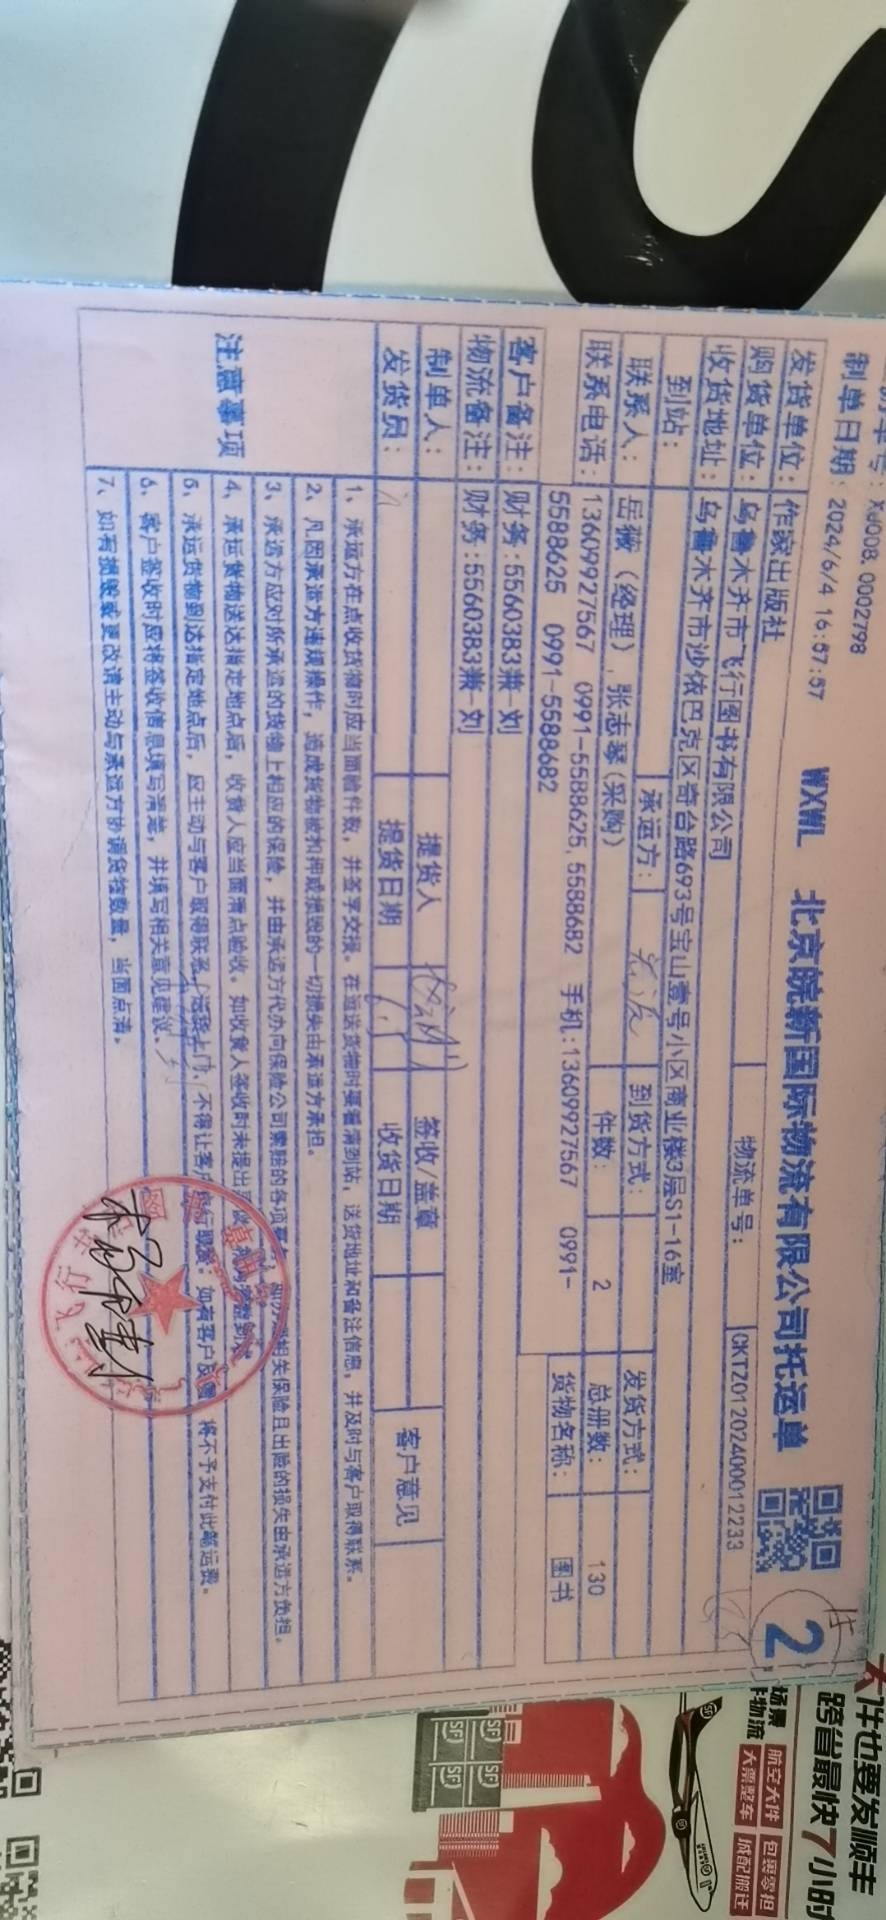 XJ008.0002798
制单日期: 2024/6/4 16:57:57 WXWL 北京皖新国际物流有限公司托运单
2
发货单位: 作家出版社
购货单位: 乌鲁木齐市飞行图书有限公司 物流单号: CKTZ0120240012233
收货地址: 乌鲁木齐市沙依巴克区奇台路693号宝山壹号小区商业楼3层S1-16室
到站: 承运方: 到货方式: 发货方式:
联系人: 岳薇(经理),张志琴(采购) 件数: 2 总册数: 130
联系电话: 13609927567 0991-5588625,5588682 手机:13609927567 0991-
5588625 0991-5588682 货物名称: 图书
客户备注: 财务:5560383兼-刘
物流备注: 财务:5560383兼-刘
制单人: 提货人 签收/盖章 客户意见
发货员: 提货日期 收货日期
注意事项
1、承运方在点收货物时应当面验件数,并签字交接。在运送货物时要看清到站,送货地址和备注信息,并及时与客户取得联系。
2、凡因承运方违规操作,造成货物被扣押或损毁的一切损失由承运方承担。
3、承运方应对所承运的货物上相应的保险,并由承运方代办向保险公司索赔的各项事 相关保险且出险的损失由承运方负担。
4、承运货物送达指定地点后,收货人应当面清点验收。如收货人签收时未提出
5、承运货物到达指定地点后,应主动与客户取得联系,送货上门,不得让客户 如有客户 将不予支付此笔运费。
6、客户签收时应将签收信息填写清楚,并填写相关意见建议。
7、如有 更改请主动与承运方协调货物数量,当面点清。
飞行
大件也要发顺丰
跨省最快7小时
航空大件 包裹零担
大票整车 城配搬迁
SF
SF
SF
SF